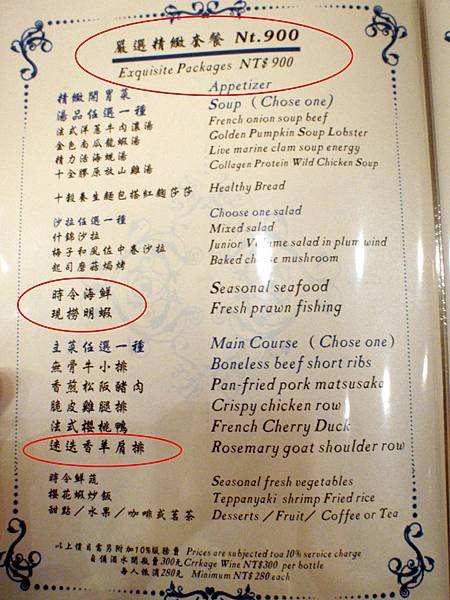 嚴選精緻套餐 Nt.900
Exquisite Packages NT$ 900
精緻開胃菜 Appetizer
湯品任選一種 Soup （Chose one）
法式洋蔥牛肉濃湯 French onion soup beef
金色南瓜龍蝦湯 Golden Pumpkin Soup Lobster
精力活海蜆湯 Live marine clam soup energy
十全膠原放山雞湯 Collagen Protein Wild Chicken Soup
十穀養生麵包搭紅麴莎莎 Healthy Bread
沙拉任選一種 Choose one salad
什錦沙拉 Mixed salad
梅子和風佐中卷沙拉 Junior Volume salad in plum wind
起司蘑菇焗烤 Baked cheese mushroom
時令海鮮 Seasonal seafood
現撈明蝦 Fresh prawn fishing
主菜任選一種 Main Course （Chose one）
無骨牛小排 Boneless beef short ribs
香煎松阪豬肉 Pan-fried pork matsusaka
脆皮雞腿排 Crispy chicken row
法式櫻桃鴨 French Cherry Duck
迷迭香羊肩排 Rosemary goat shoulder row
時令鮮蔬 Seasonal fresh vegetables
櫻花蝦炒飯 Teppanyaki shrimp Fried rice
甜點／水果／咖啡或茗茶 Desserts／Fruit／ Coffee or Tea
以上價目需另附加10%服務費 Prices are subjected toa 10% service charge
自備酒水開瓶費300元 Crrkage Wine NT$300 per bottle
每人低消280元 Minimum NT$280 each